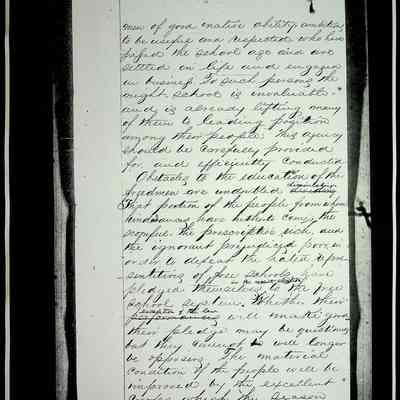 men of good native ability, ambitious
to be useful and respected who have
passed the school age and are
settled in life and engaged
in business. To such persons the
night school is invaluable
and is already lifting many
of them to leading position
among their people. This agency
should be carefully provided
for and efficiently conducted
Obstacles to the education of the
freedmen are
That portion of the people from whom
hindrances have hitherto come, the
scornful, the proscriptive rich, and
the ignorant prejudiced poor, in
order to defeat the hated
of free schools have
pledged themselves to the free
school system. Whether their
will make good
their pledge may be questioned
but they cannot will longer
be opposers. The material
condition of the people will be
improved by the excellent
which the season